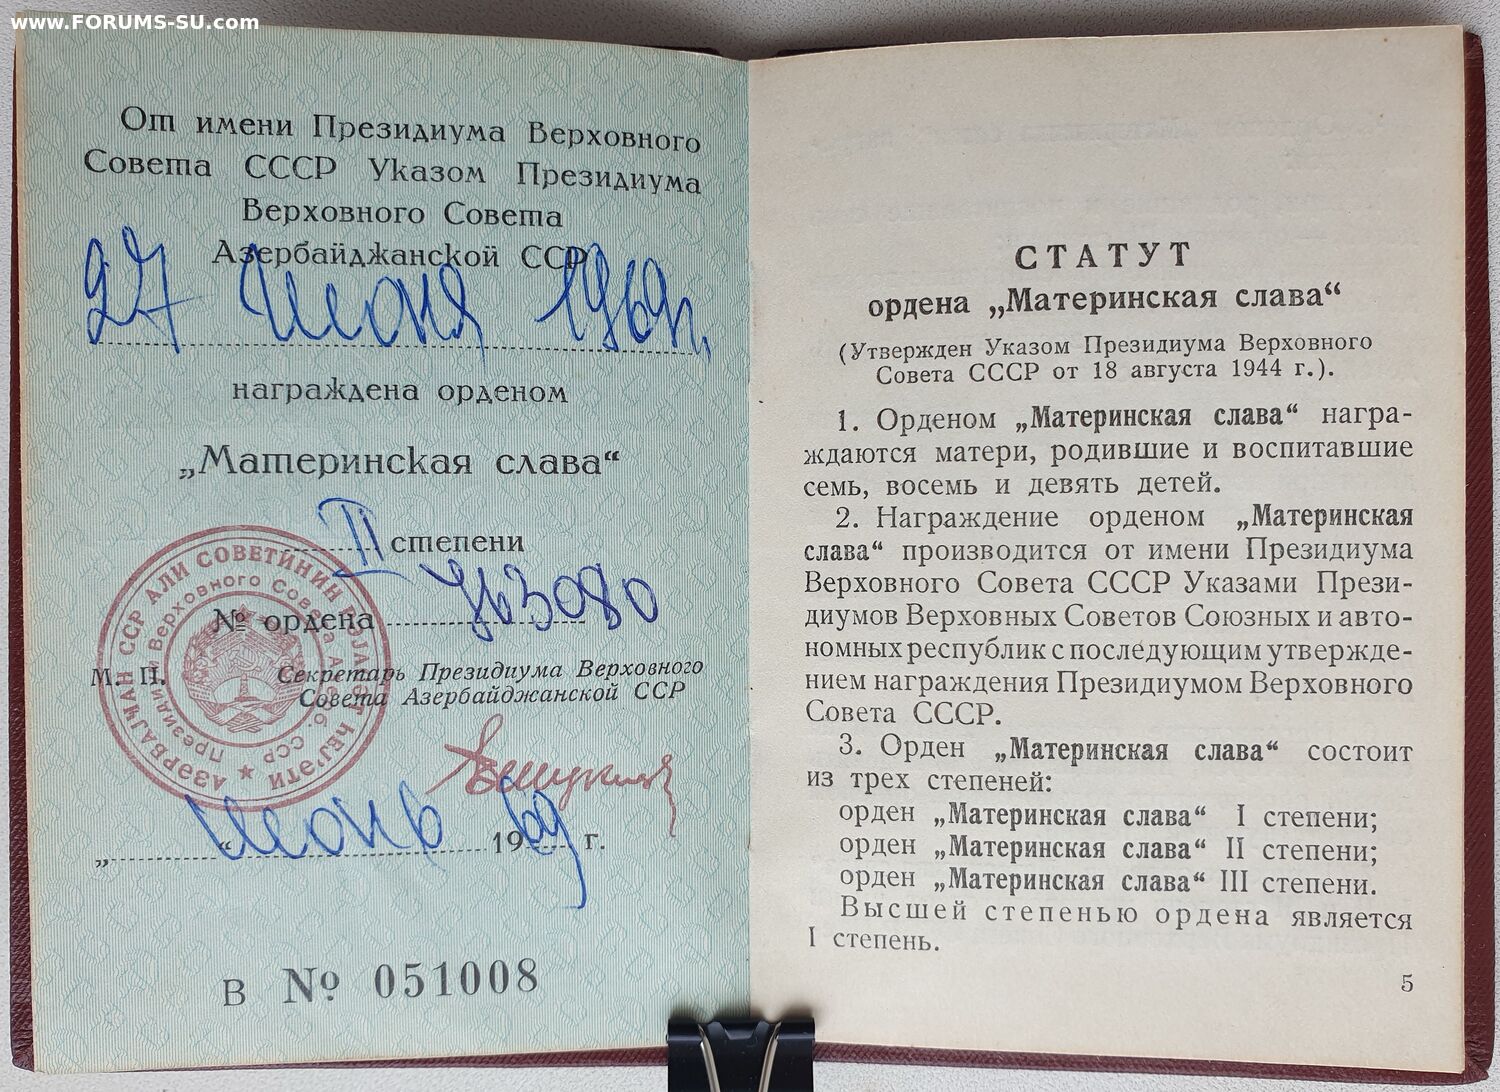 www.FORUMS-SU.com
От имени Президиума Верховного
Совета СССР Указом Президиума
Верховного Совета
Азербайджанской ССР
27 июня 1969 г.
награждена орденом
„Материнская слава“
II степени
№ ордена 763080
М. П.
Секретарь Президиума Верховного
Совета Азербайджанской ССР
АЗӘРБАЈҸАН ССР АЛИ СОВЕТИНИН РӘЈАСӘТ ҺЕЈ'ӘТИ
Президиум Верховного Совета Азерб. ССР
„ “ июнь 1969 г.
В № 051008
СТАТУТ
ордена „Материнская слава“
(Утвержден Указом Президиума Верховного
Совета СССР от 18 августа 1944 г.).
1. Орденом „Материнская слава“ награ-
ждаются матери, родившие и воспитавшие
семь, восемь и девять детей.
2. Награждение орденом „Материнская
слава“ производится от имени Президиума
Верховного Совета СССР Указами Прези-
диумов Верховных Советов Союзных и авто-
номных республик с последующим утвержде-
нием награждения Президиумом Верховного
Совета СССР.
3. Орден „Материнская слава“ состоит
из трех степеней:
орден „Материнская слава“ I степени;
орден „Материнская слава“ II степени;
орден „Материнская слава“ III степени.
Высшей степенью ордена является
I степень.
5